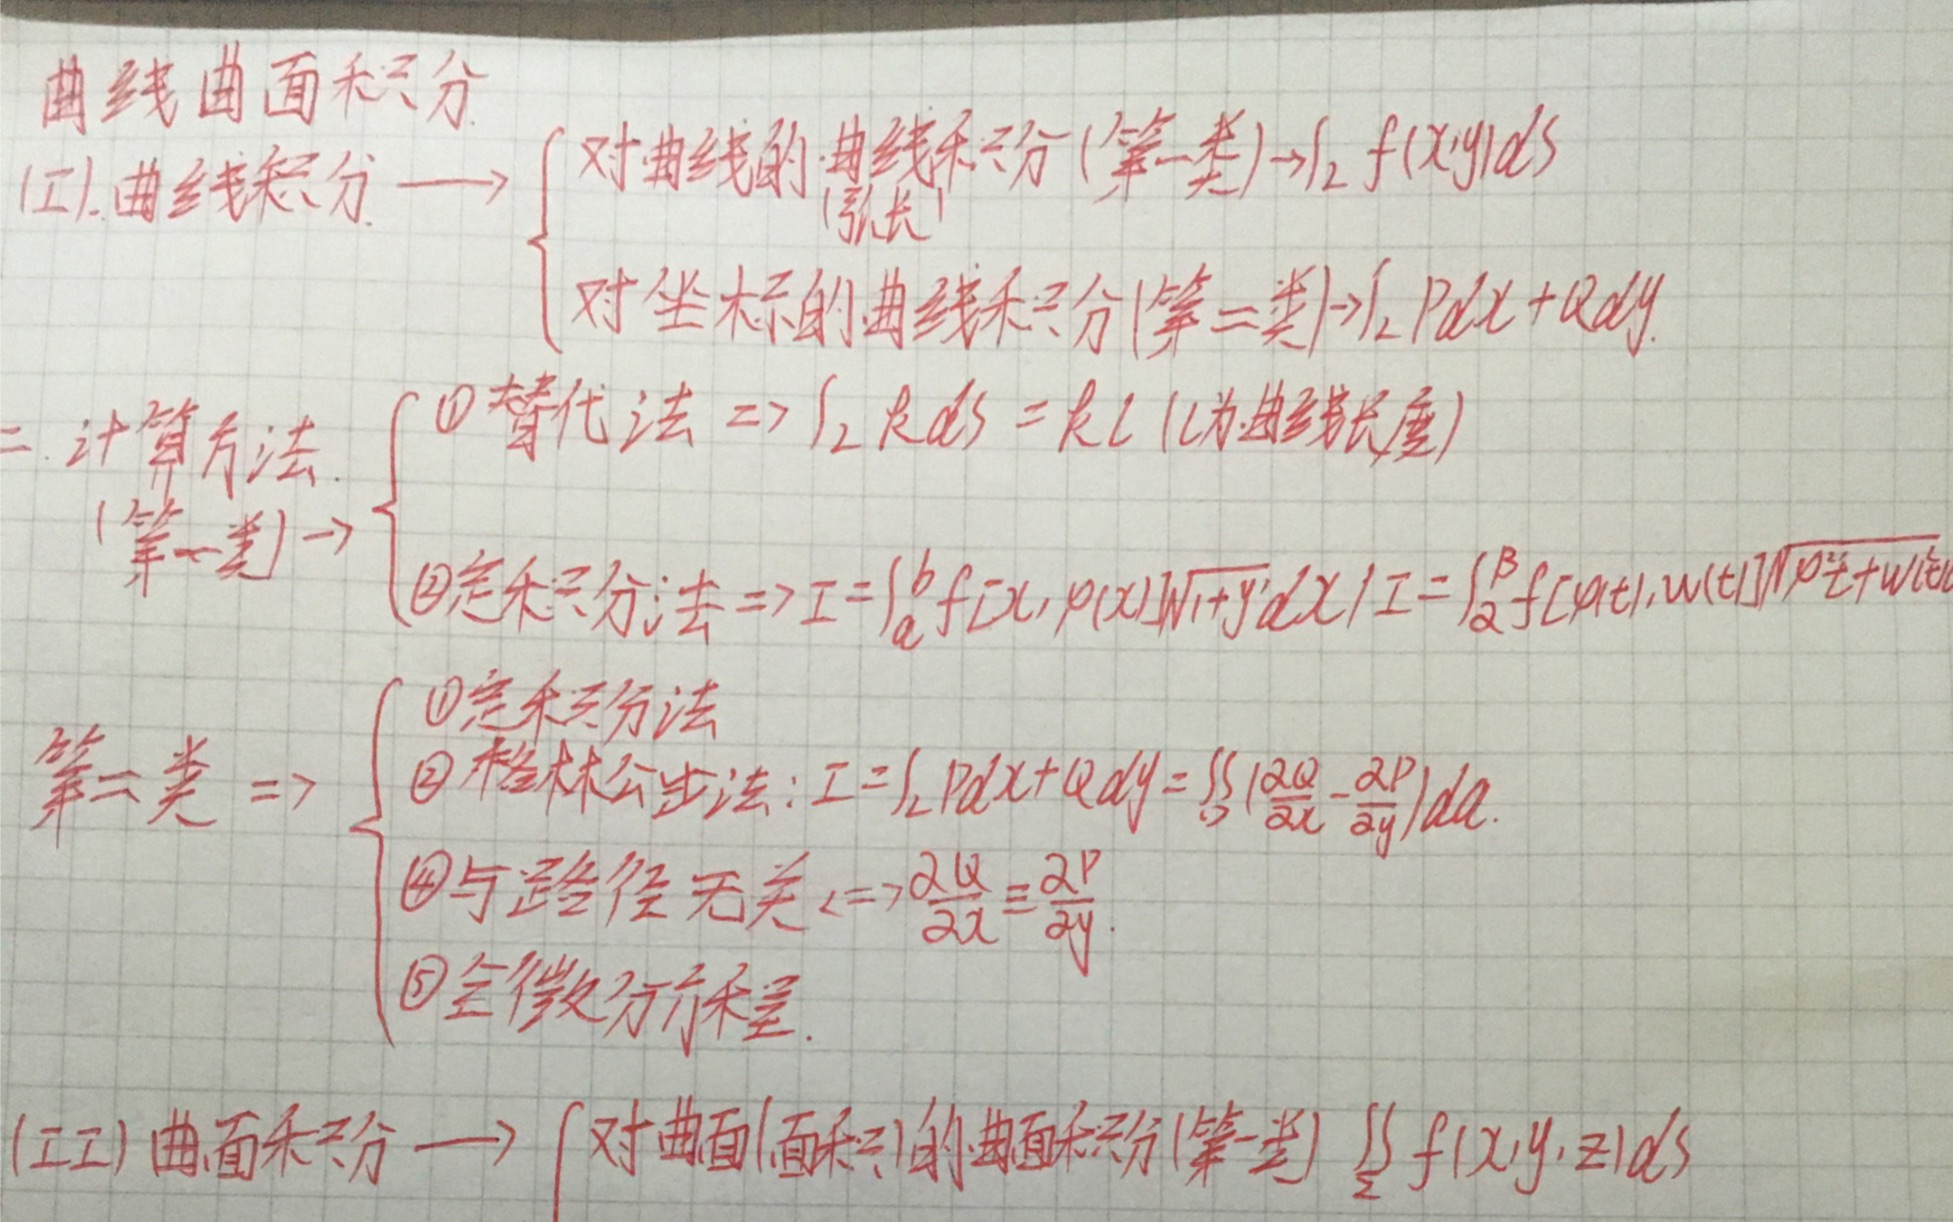 曲线曲面积分
(I).曲线积分 ⟶ { 对曲线的曲线积分(第一类)→∫L f(x,y)ds
(弧长)
对坐标的曲线积分(第二类)→∫L Pdx+Qdy.
二.计算方法.
(第一类)→ { ①替代法 => ∫L kds = kL (L为曲线长度)
②定积分法 => I=∫_a^b f[x,φ(x)]√1+y'dx / I=∫_α^β f[φ(t),w(t)]√φ'²t+w'(t)
第二类 => { ①定积分法
②格林公步法: I=∫L Pdx+Qdy=∬D(∂Q/∂x-∂P/∂y)da.
④与路径无关 <=> ∂Q/∂x≡∂P/∂y.
⑤全微分方程.
(II)曲面积分 ⟶ { 对曲面(面积)的曲面积分(第一类) ∬Σ f(x,y,z)ds